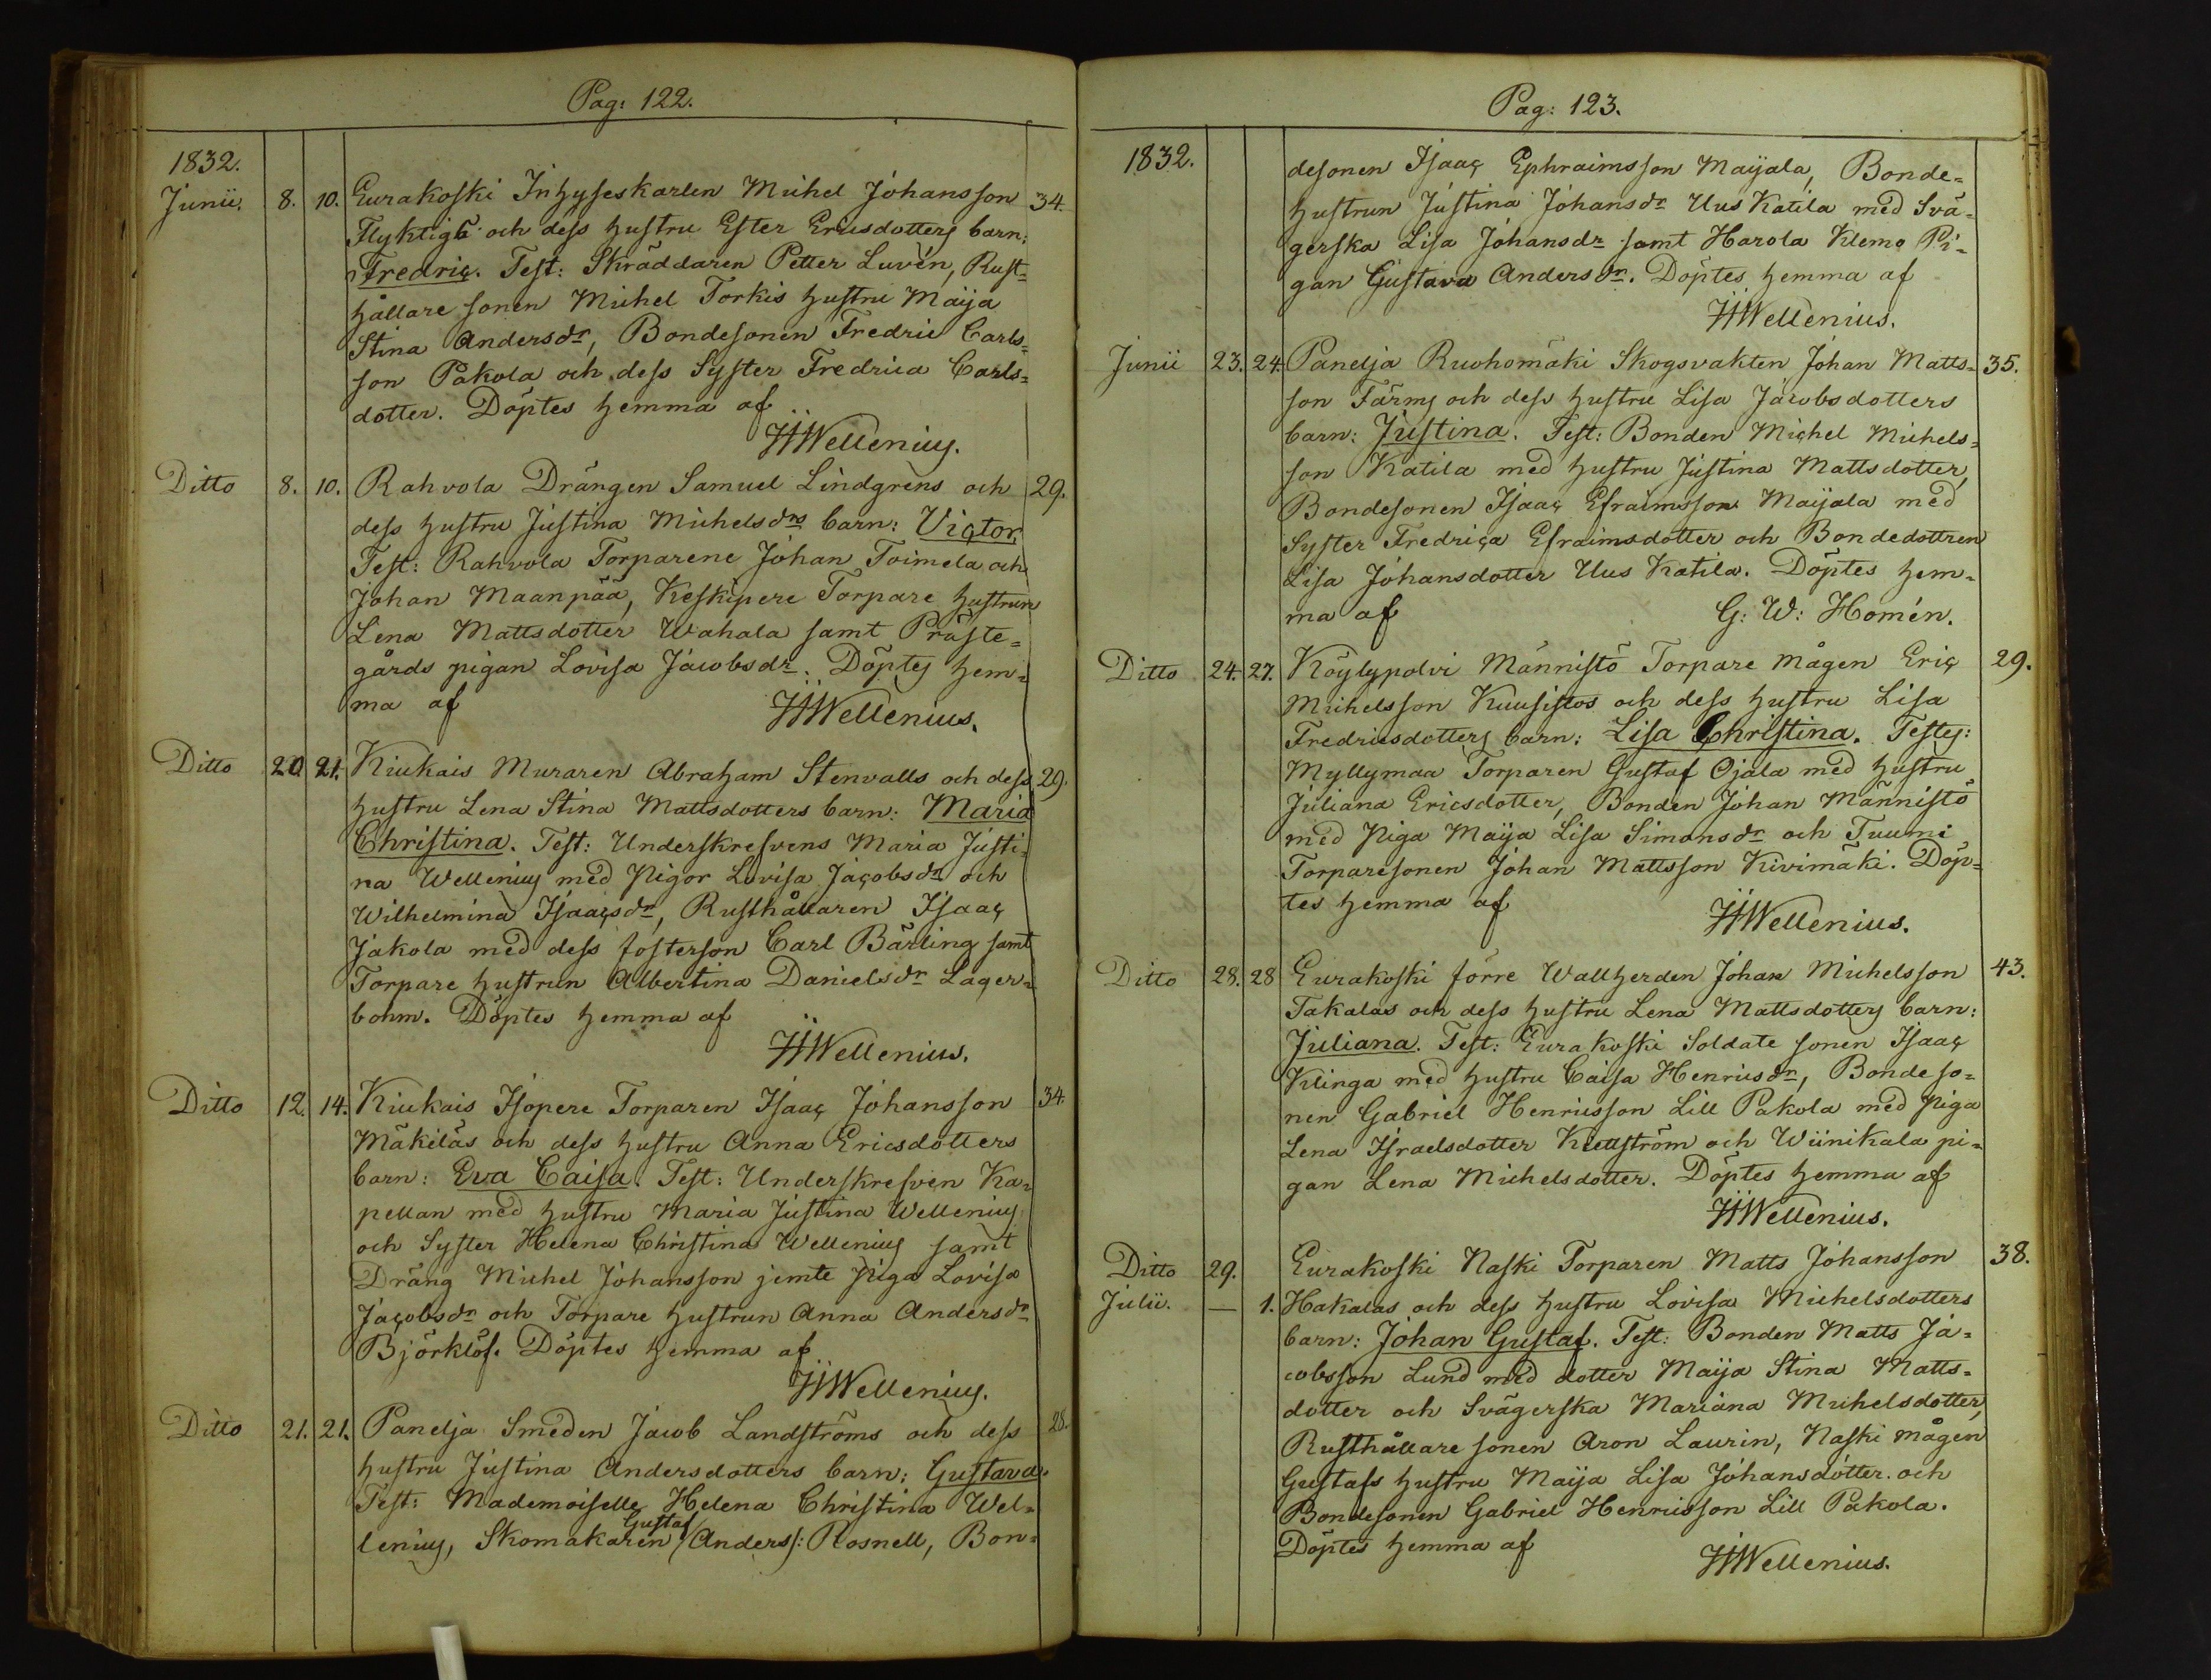 Pag: 122.
1832.
Junii. 8. 10. Eurakoski Inhyseskarlen Michel Johansson 34.
Flyktigs och dess hustru Ester Ericsdotters barn:
Fredric. Test: Skräddaren Petter Luvén, Rust=
hållare sonen Michel Torkis hustru Maija
Stina Andersdr, Bondesonen Fredric Carls=
son Pakola och dess Syster Fredrica Carls=
dotter. Döptes hemma af
HWellenius.
Ditto 8. 10. Rahvola Drängen Samuel Lindgréns och 29.
dess hustru Justina Michelsdrs barn: Victor.
Test: Rahvola Torparene Johan Toimela och
Johan Maanpää, Keskipere Torpare hustrun
Lena Mattsdotter Wahala samt Präste=
gårds pigan Lovisa Jacobsdr. Döptes hem=
ma af HWellenius.
Ditto 20 21. Kiukais Muraren Abraham Stenvalls och dess 29.
hustru Lena Stina Mattsdotters barn: Maria
Christina. Test: Underskrefvens Maria Justi=
na Wellenius med Pigor Lovisa Jacobsdr och
Wilhelmina Isaacsdr, Rusthållaren Isaac
Jakola med dess fosterson Carl Bärling samt
Torpare hustrun Albertina Danielsdr Lager=
bohm. Döptes hemma af
HWellenius.
Ditto 12. 14. Kiukais Isopere Torparen Isaac Johansson 34.
Mäkiläs och dess hustru Anna Ericsdotters
barn: Eva Caisa. Test: Underskrefven Ka=
pellan med hustru Maria Justina Wellenius
och Syster Helena Christina Wellenius samt
Dräng Michel Johansson jemte Piga Lovisa
Jacobsdr och Torpare hustrun Anna Andersdr
Björklöf. Döptes hemma af
HWellenius.
Ditto 21. 21. Panelja Smeden Jacob Landströms och dess 28.
hustru Justina Andersdotters barn: Gustava.
Test: Mademoiselle Helena Christina Wel=
Gustaf
lenius, Skomakaren /Anders/: Rosnell, Bon=
Pag: 123.
1832.
desonen Isaac Ephraimsson Maijala, Bonde=
hustrun Justina Johansdr Uus Katila med Svä=
gerska Lisa Johansdr samt Harola Klemo Pi=
gan Gustava Andersdr. Döptes hemma af
HWellenius.
Junii 23. 24. Panelja Ruohomäki Skogsvakten Johan Matts= 35.
son Färms och dess hustru Lisa Jacobsdotters
barn: Justina. Test: Bonden Michel Michels=
son Katila med hustru Justina Mattsdotter,
Bondesonen Isaac Efraimsson Maijala med
Syster Fredrica Efraimsdotter och Bondedottren
Lisa Johansdotter Uus Katila. Döptes hem=
ma af G: W: Homén.
Ditto 24. 27. Köylypolvi Männistö Torpare mågen Eric 29.
Michelsson Kuusistos och dess hustru Lisa
Fredricsdotters barn: Lisa Christina. Testes:
Myllymaa Torparen Gustaf Ojala med hustru
Juliana Ericsdotter, Bonden Johan Männistö
med Piga Maija Lisa Simonsdr och Tuumi
Torparesonen Johan Mattsson Kivimäki. Döp=
tes hemma af
HWellenius.
Ditto 28. 28 Eurakoski förre Wallherden Johan Michelsson 43.
Takalas och dess hustru Lena Mattsdotters barn:
Juliana. Test: Eurakoski Soldate sonen Isaac
Klinga med hustru Caisa Henricsdr, Bondeso=
nen Gabriel Henricsson Lill Pakola med Piga
Lena Israelsdotter Kiettström och Wiinikala pi=
gan Lena Michelsdotter. Döptes hemma af
HWellenius.
Ditto 29. Eurakoski Naski Torparen Matts Johansson 38.
Julii. — 1. Hakalas och dess hustru Lovisa Michelsdotters
barn: Johan Gustaf. Test: Bonden Matts Ja=
cobsson Lund med dotter Maija Stina Matts=
dotter och Svägerska Mariana Michelsdotter,
Rusthållare sonen Aron Laurin, Naski mågen
Gustafs hustru Maija Lisa Johansdotter och
Bondesonen Gabriel Henricsson Lill Pakola.
Döptes hemma af
HWellenius.